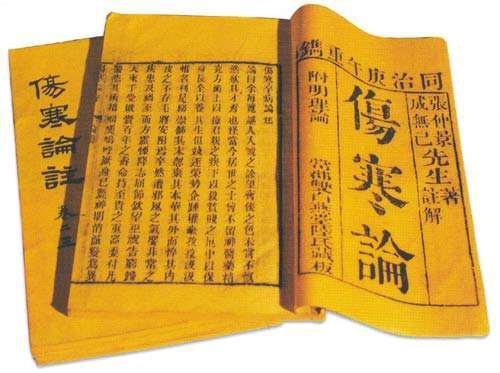 同治庚午重鐫
張仲景著
成無己先生註解
傷寒論
附明理論
常郡雙白燕堂陸氏藏板
傷寒卒病論集
論曰余每覽越人入虢之診望齊侯之色未嘗不慨
然歎其才秀也怪當今居世之士曾不留神醫藥精
究方術上以療君親之疾下以救貧賤之厄中以保
身長全以養其生但競逐榮勢企踵權豪孜孜汲汲
惟名利是務崇飾其末忽棄其本華其外而悴其內
皮之不存毛將安附焉卒然遭邪風之氣嬰非常之
疾患及禍至而方震慄降志屈節欽望巫祝告窮歸
天束手受敗賫百年之壽命持至貴之重器委付凡
醫恣其所措咄嗟嗚呼厥身已斃神明消滅變為異
傷寒論註
卷二三